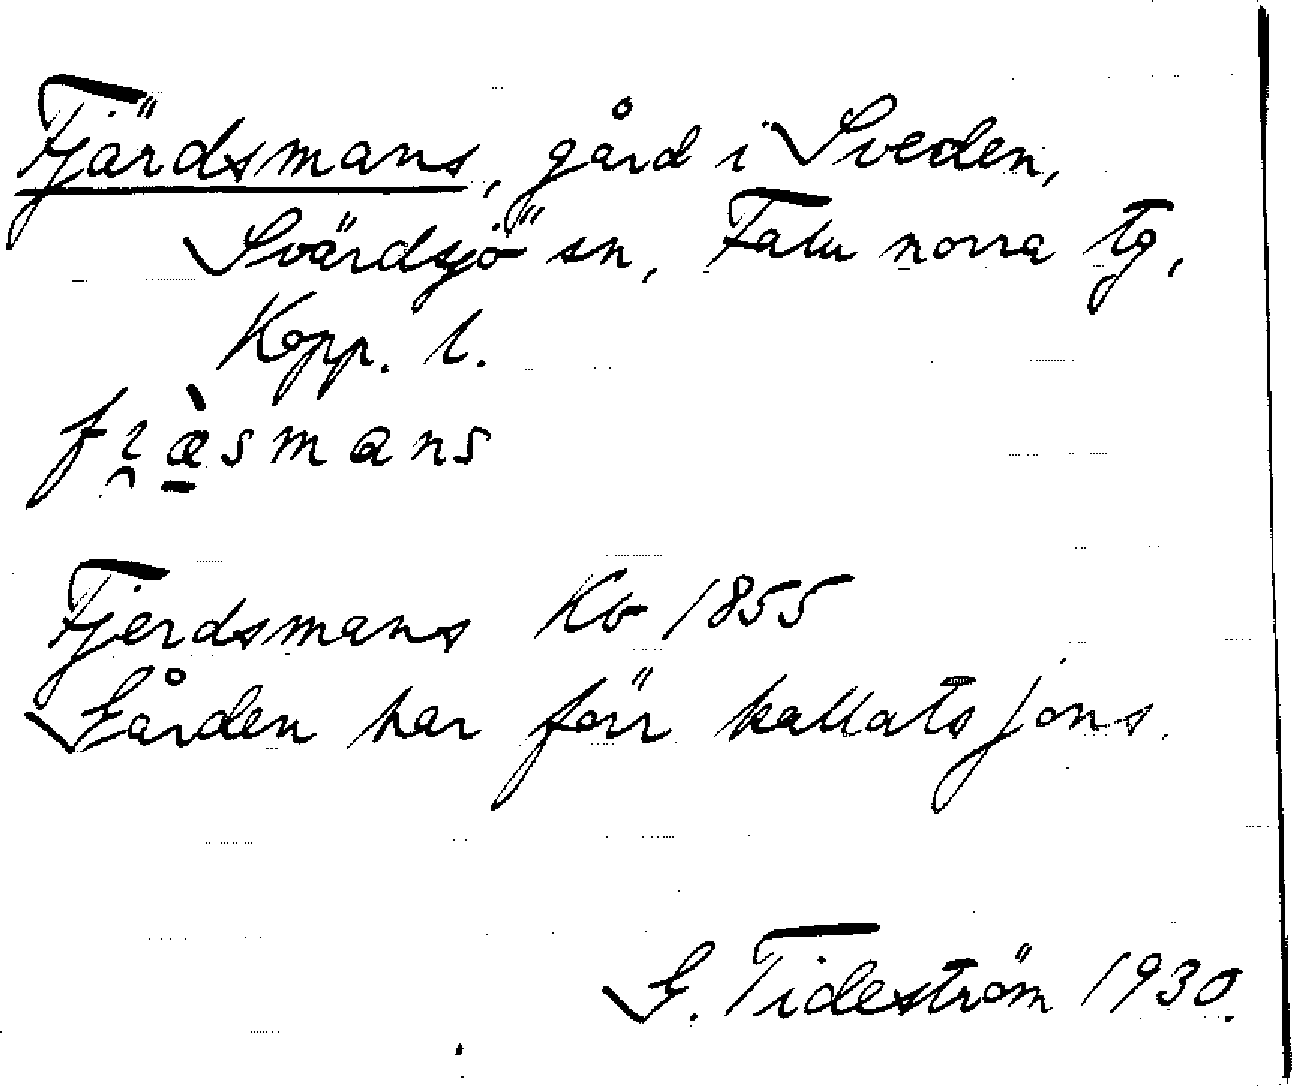 Fjärdsmans, gård i Sveden,
Svärdsjö sn, Falu norra tg,
Kopp. l.
fi̯æ̱̀smans
Fjerdsmans Kb 1855
Gården har förr kallats Jons.
G. Tideström 1930.